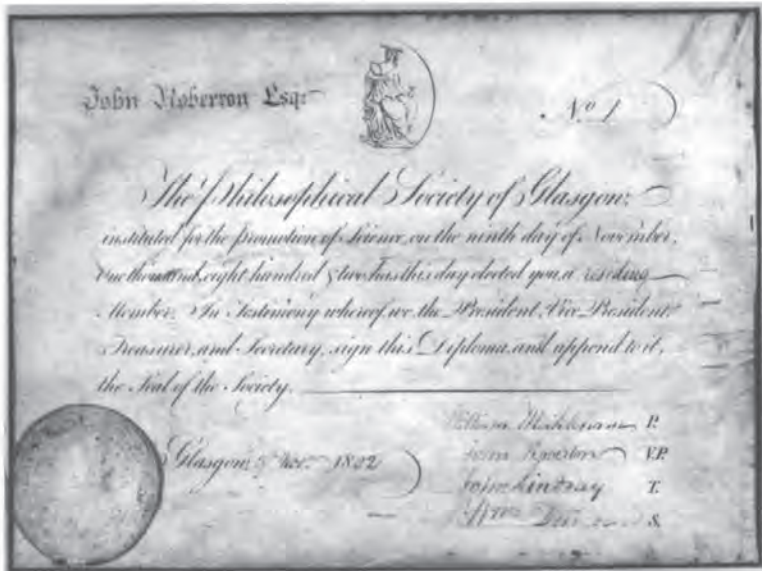 John Roberton Esq:
No 1
The Philosophical Society of Glasgow:
instituted for the promotion of Science, on the ninth day of November,
One thousand, eight hundred & two has this day elected you a residing
Member. In Testimony whereof we the President, Vice President,
Treasurer, and Secretary, sign this Diploma, and append to it,
the Seal of the Society.
William P.
Glasgow, Nov. 1802
John Roberton V.P.
John Lindsay T.
Wm S.